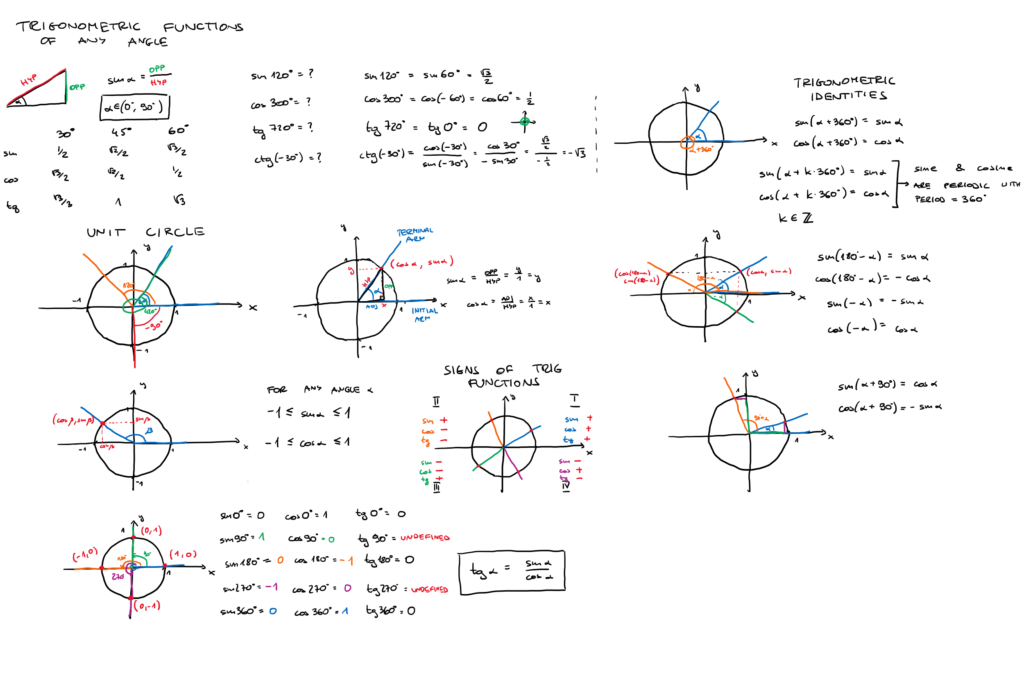 TRIGONOMETRIC FUNCTIONS
OF ANY ANGLE
HYP
OPP
α
sin α = OPP/HYP
α∈(0°, 90°)
30° 45° 60°
sin 1/2 √2/2 √3/2
cos √3/2 √2/2 1/2
tg √3/3 1 √3
sin 120° = ?
cos 300° = ?
tg 720° = ?
ctg(-30°) = ?
sin 120° = sin 60° = √3/2
cos 300° = cos(-60°) = cos 60° = 1/2
tg 720° = tg 0° = 0
?
ctg(-30°) = cos(-30°)/sin(-30°) = cos 30°/-sin 30° = √3/2/-1/2 = -√3
y
x
α
α+360°
TRIGONOMETRIC
IDENTITIES
sin(α+360°) = sin α
cos(α+360°) = cos α
sin(α + k·360°) = sin α
cos(α + k·360°) = cos α
k∈ℤ
SINE & COSINE
ARE PERIODIC WITH
PERIOD = 360°
UNIT CIRCLE
y
x
1
-1
1
-1
120°
420°
-90°
y
x
TERMINAL
ARM
(cos α, sin α)
y
HYP
OPP
α
ADJ
x
1
INITIAL
ARM
-1
sin α = OPP/HYP = y/1 = y
cos α = ADJ/HYP = x/1 = x
y
x
(cos(180-α)
sin(180-α))
(cos α, sin α)
180-α
α
-α
-1
1
-1
sin(180°-α) = sin α
cos(180°-α) = -cos α
sin(-α) = -sin α
cos(-α) = cos α
y
x
(cos β, sin β)
sin β
cos β
β
-1
1
-1
FOR ANY ANGLE α
-1 ≤ sin α ≤ 1
-1 ≤ cos α ≤ 1
SIGNS OF TRIG
FUNCTIONS
II
sin +
cos -
tg -
I
sin +
cos +
tg +
sin -
cos -
tg +
III
sin -
cos +
tg -
IV
y
x
y
x
1
1
-1
90+α
α
sin(α+90°) = cos α
cos(α+90°) = -sin α
y
x
1
(0,1)
(-1,0)
(1,0)
(0,-1)
90°
180°
270°
sin 0° = 0 cos 0° = 1 tg 0° = 0
sin 90° = 1 cos 90° = 0 tg 90° = UNDEFINED
sin 180° = 0 cos 180° = -1 tg 180° = 0
sin 270° = -1 cos 270° = 0 tg 270° = UNDEFINED
sin 360° = 0 cos 360° = 1 tg 360° = 0
tg α = sin α/cos α